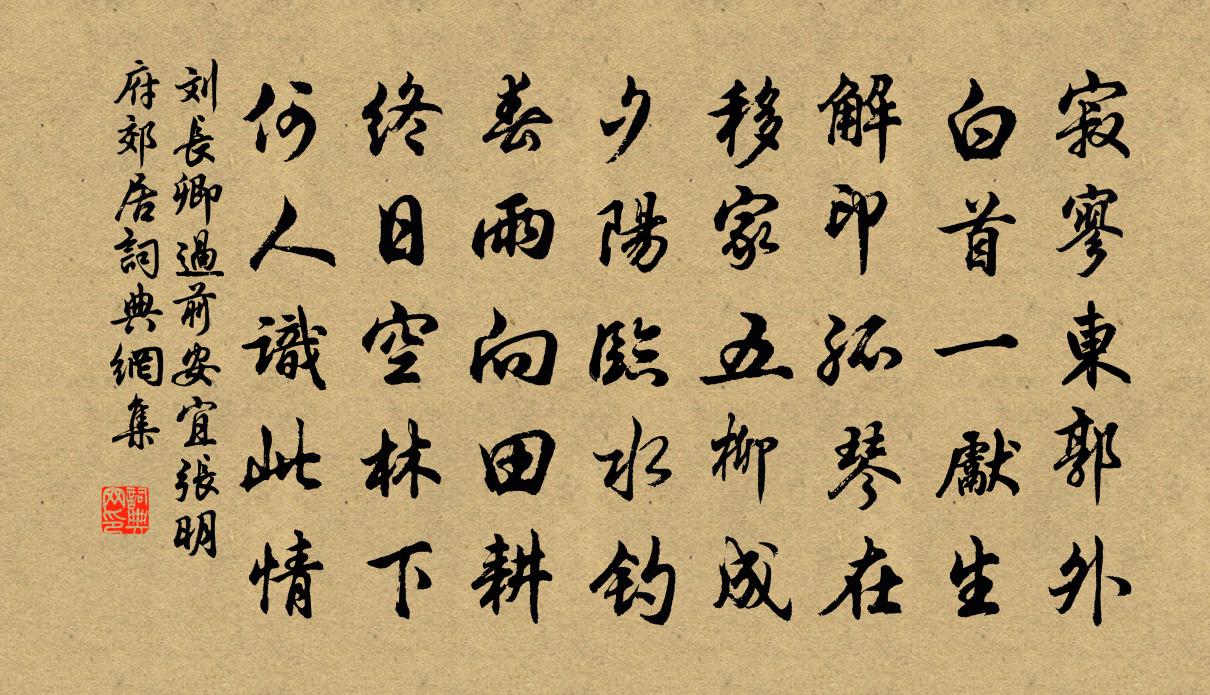 寂寥東郭外
白首一獻生
解印孤琴在
移家五柳成
夕陽臨水釣
春雨向田耕
終日空林下
何人識此情
刘長卿過前安宜張明
府郊居詞典網集
詞典
网印